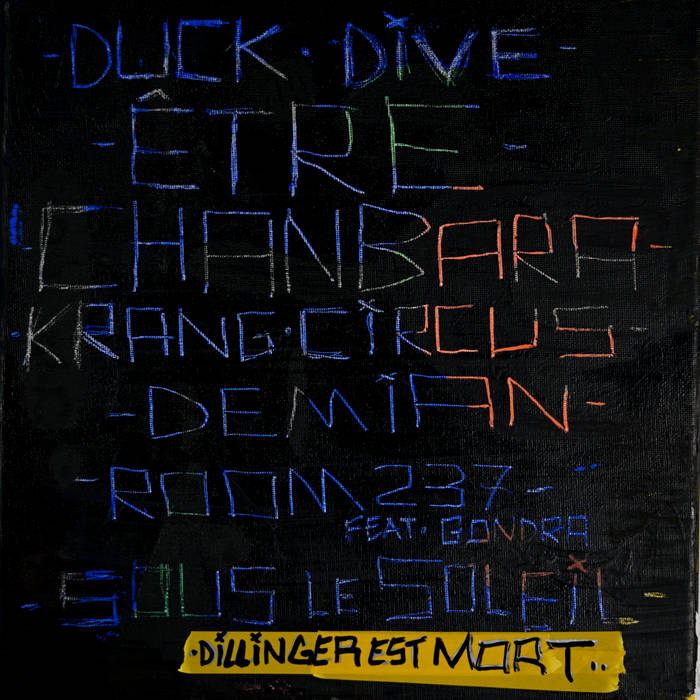 -DUCK·DiVE-
-ÊTRE-
-CHANBARA-
-KRANG·CiRCUS-
-DEMiAN-
-ROOM 237-
FEAT· GONDRA
-SOUS LE SOLEiL-
·DiLLiNGER EST MORT..